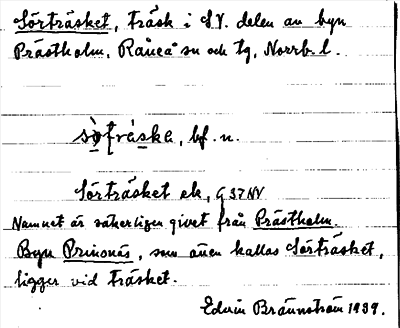 Sörträsket, träsk i S.V. delen av byn
Prästholm, Råneå sn och tg, Norrb. l.
bf. n.
Sörträsket ek, G 37 NV
Namnet är säkerligen givet från Prästholm.
Byn Prinsnäs, som även kallas Sörträsket,
ligger vid träsket.
Edvin Brännström 1939.